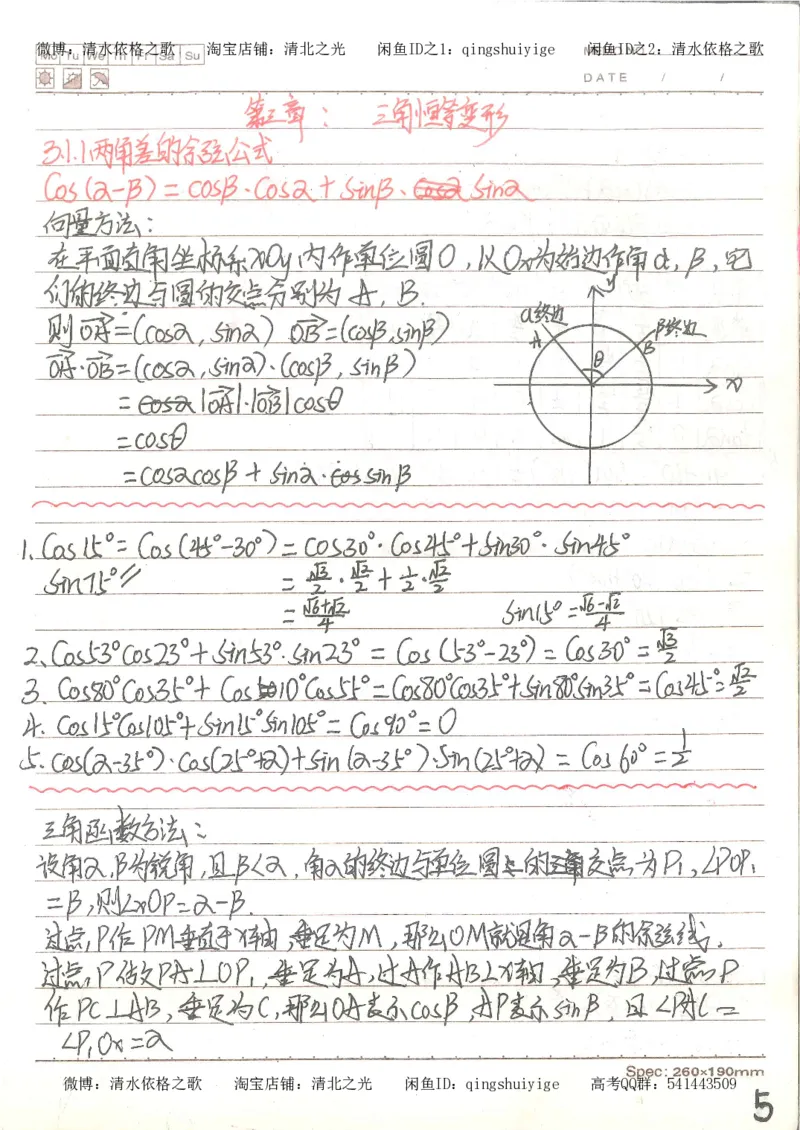 微博：清水依格之歌 淘宝店铺：清北之光 闲鱼ID之1：qingshuiyige 闲鱼ID之2：清水依格之歌
Mo Tu We Th Fr Sa Su
DATE / /
第三章： 三角恒等变形
3.1.1两角差的余弦公式
Cos(α-β)=cosβ·cosα+sinβ·sinα
向量方法：
在平面直角坐标系xOy内作单位圆O，以Ox为始边作角α，β，它
们的终边与圆的交点分别为A，B.
则OA=(cosα, sinα) OB=(cosβ, sinβ)
OA·OB=(cosα, sinα)·(cosβ, sinβ)
=|OA|·|OB|cosθ
=cosθ
=cosαcosβ+sinα·sinβ
y
α终边
β终边
A
B
θ
x
1. Cos15°=Cos(45°-30°)=cos30°·Cos45°+sin30°·sin45°
sin75°〃 =√3/2·√2/2+1/2·√2/2
=(√6+√2)/4 sin15°=(√6-√2)/4
2、Cos53°Cos23°+sin53°·sin23°=Cos(53°-23°)=Cos30°=√3/2
3. Cos80°Cos35°+Cos10°Cos55°=Cos80°Cos35°+sin80°sin35°=Cos45°=√2/2
4. Cos15°Cos105°+sin15°sin105°=Cos90°=0
5. cos(α-35°)·Cos(25°+α)+sin(α-35°)·sin(25°+α)=Cos60°=1/2
三角函数方法：
设角α，β为锐角，且β<α，角α的终边与单位圆的交点为P₁，∠POP₁
=β，则∠xOP=α-β.
过点P作PM垂直于x轴，垂足为M，那么OM就是角α-β的余弦线.
过点P作PA⊥OP₁，垂足为A，过A作AB⊥x轴，垂足为B，过点P
作PC⊥AB，垂足为C，那么OA表示cosβ，AP表示sinβ，且∠PAC=
∠P₁Ox=α
Spec: 260×190mm
微博：清水依格之歌 淘宝店铺：清北之光 闲鱼ID：qingshuiyige 高考QQ群：541443509
5